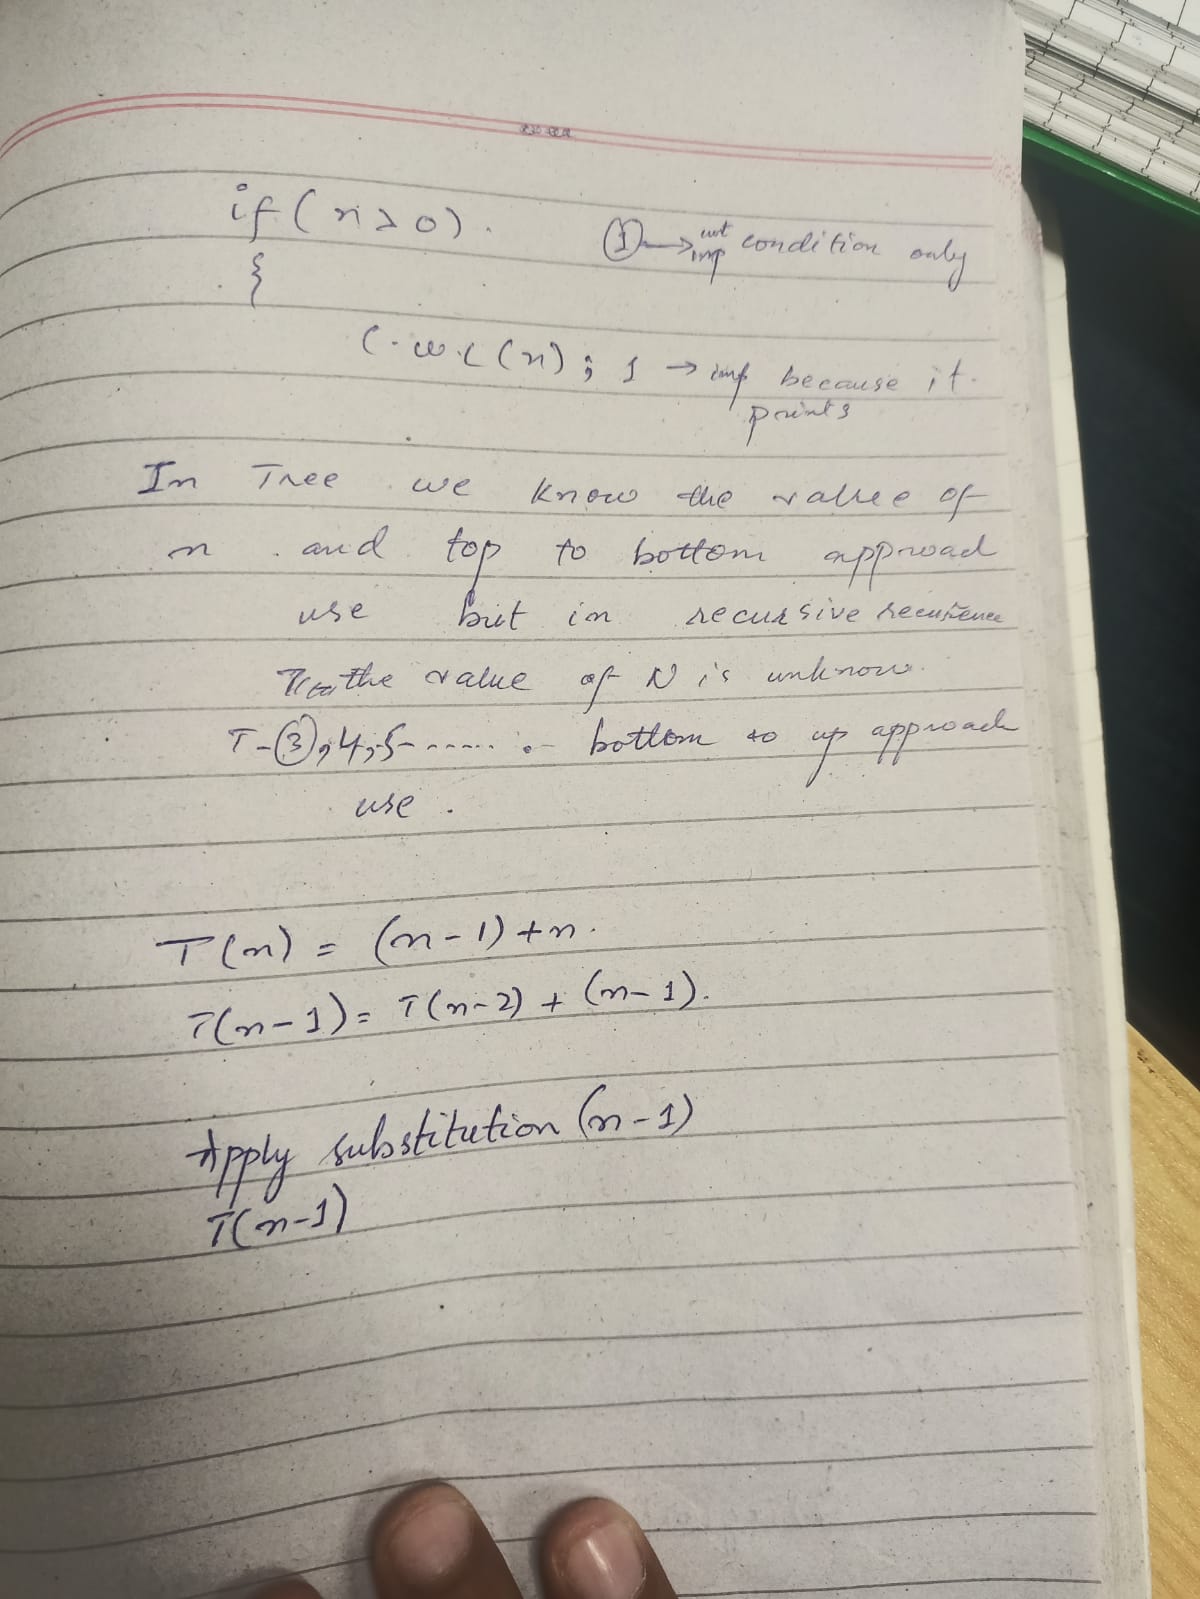 if (n > 0).
① → not imp condition only
{
C.W.L (n) ; 1 → imp because it
prints
In Tree we know the value of
n and top to bottom approach
use but in recursive recurrence
the value of N is unknow.
T-③,4,5------ .- bottom to up approach
use .
T(n) = (n-1)+n.
T(n-1) = T(n-2) + (n-1).
Apply substitution (n-1)
T(n-1)